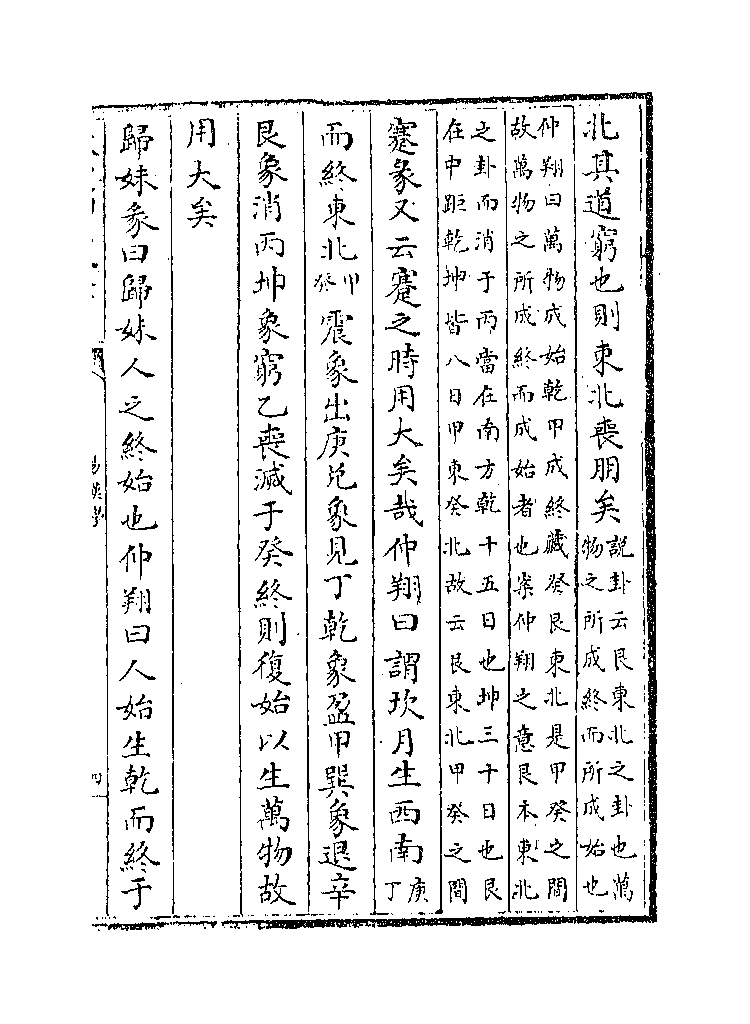 北其道窮也則東北喪朋矣說卦云艮東北之卦也萬
物之所成終而所成始也
仲翔曰萬物成始乾甲成終藏癸艮東北是甲癸之間
故萬物之所成終而成始者也案仲翔之意艮本東北
之卦而消于丙當在南方乾十五日也坤三十日也艮
在中距乾坤皆八日甲東癸北故云艮東北甲癸之間
蹇彖又云蹇之時用大矣哉仲翔曰謂坎月生西南庚
丁
而終東北甲
癸震象出庚兌象見丁乾象盈甲巽象退辛
艮象消丙坤象窮乙喪滅于癸終則復始以生萬物故
用大矣
歸妹彖曰歸妹人之終始也仲翔曰人始生乾而終于
易漢學
四